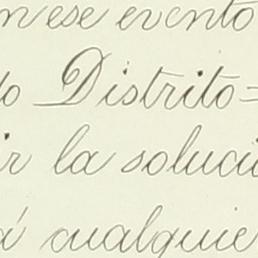 n ese evento
do Distrito=
ir la soluci
á cualquie